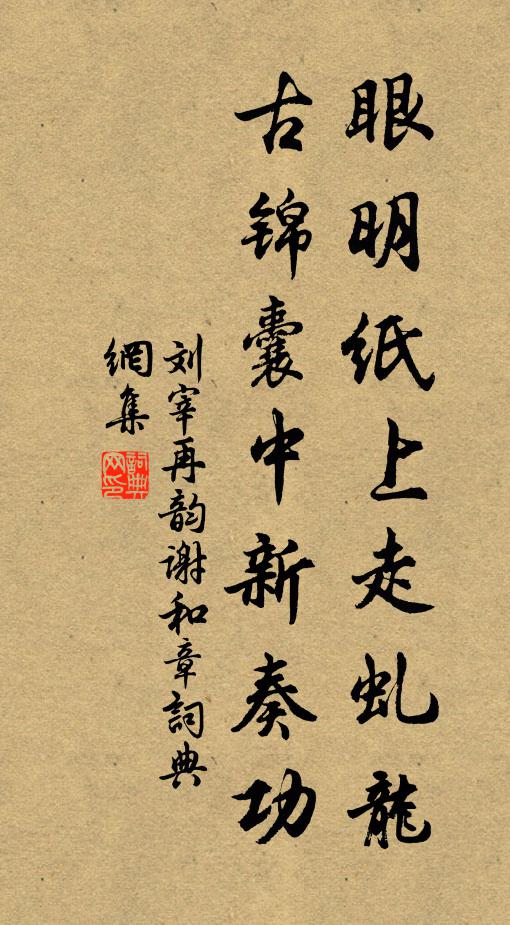 眼明纸上走虬龍
古锦囊中新奏功
刘宰再韵谢和章詞典
網集
詞典
网印